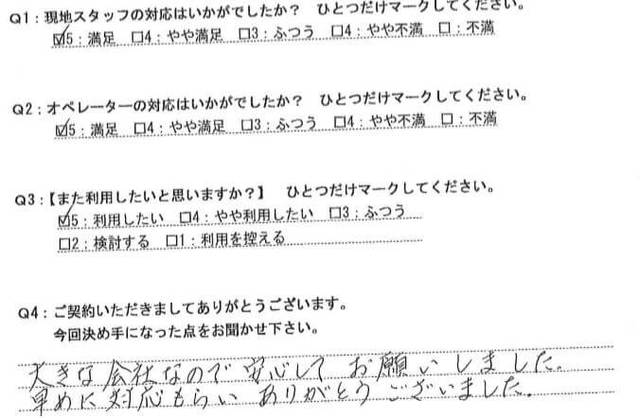 Q1：現地スタッフの対応はいかがでしたか？　ひとつだけマークしてください。
☑5：満足　□4：やや満足　□3：ふつう　□4：やや不満　□：不満
Q2：オペレーターの対応はいかがでしたか？　ひとつだけマークしてください。
☑5：満足　□4：やや満足　□3：ふつう　□4：やや不満　□：不満
Q3：【また利用したいと思いますか？】　ひとつだけマークしてください。
☑5：利用したい　□4：やや利用したい　□3：ふつう
□2：検討する　□1：利用を控える
Q4：ご契約いただきましてありがとうございます。
今回決め手になった点をお聞かせ下さい。
大きな会社なので安心して お願いしました。
早めに対応もらい ありがとうございました。